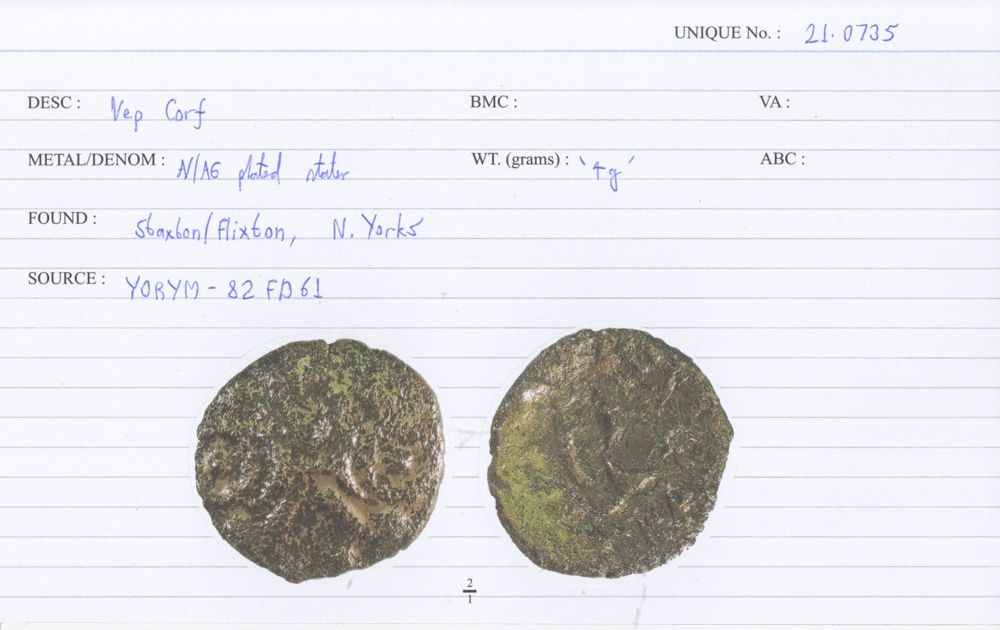 UNIQUE No. : 21.0735
DESC : Vep Corf BMC : VA :
METAL/DENOM : N/AE plated stater WT. (grams) : '4g' ABC :
FOUND : Staxton/Flixton, N. Yorks
SOURCE : YORYM - 82FD61
2
1